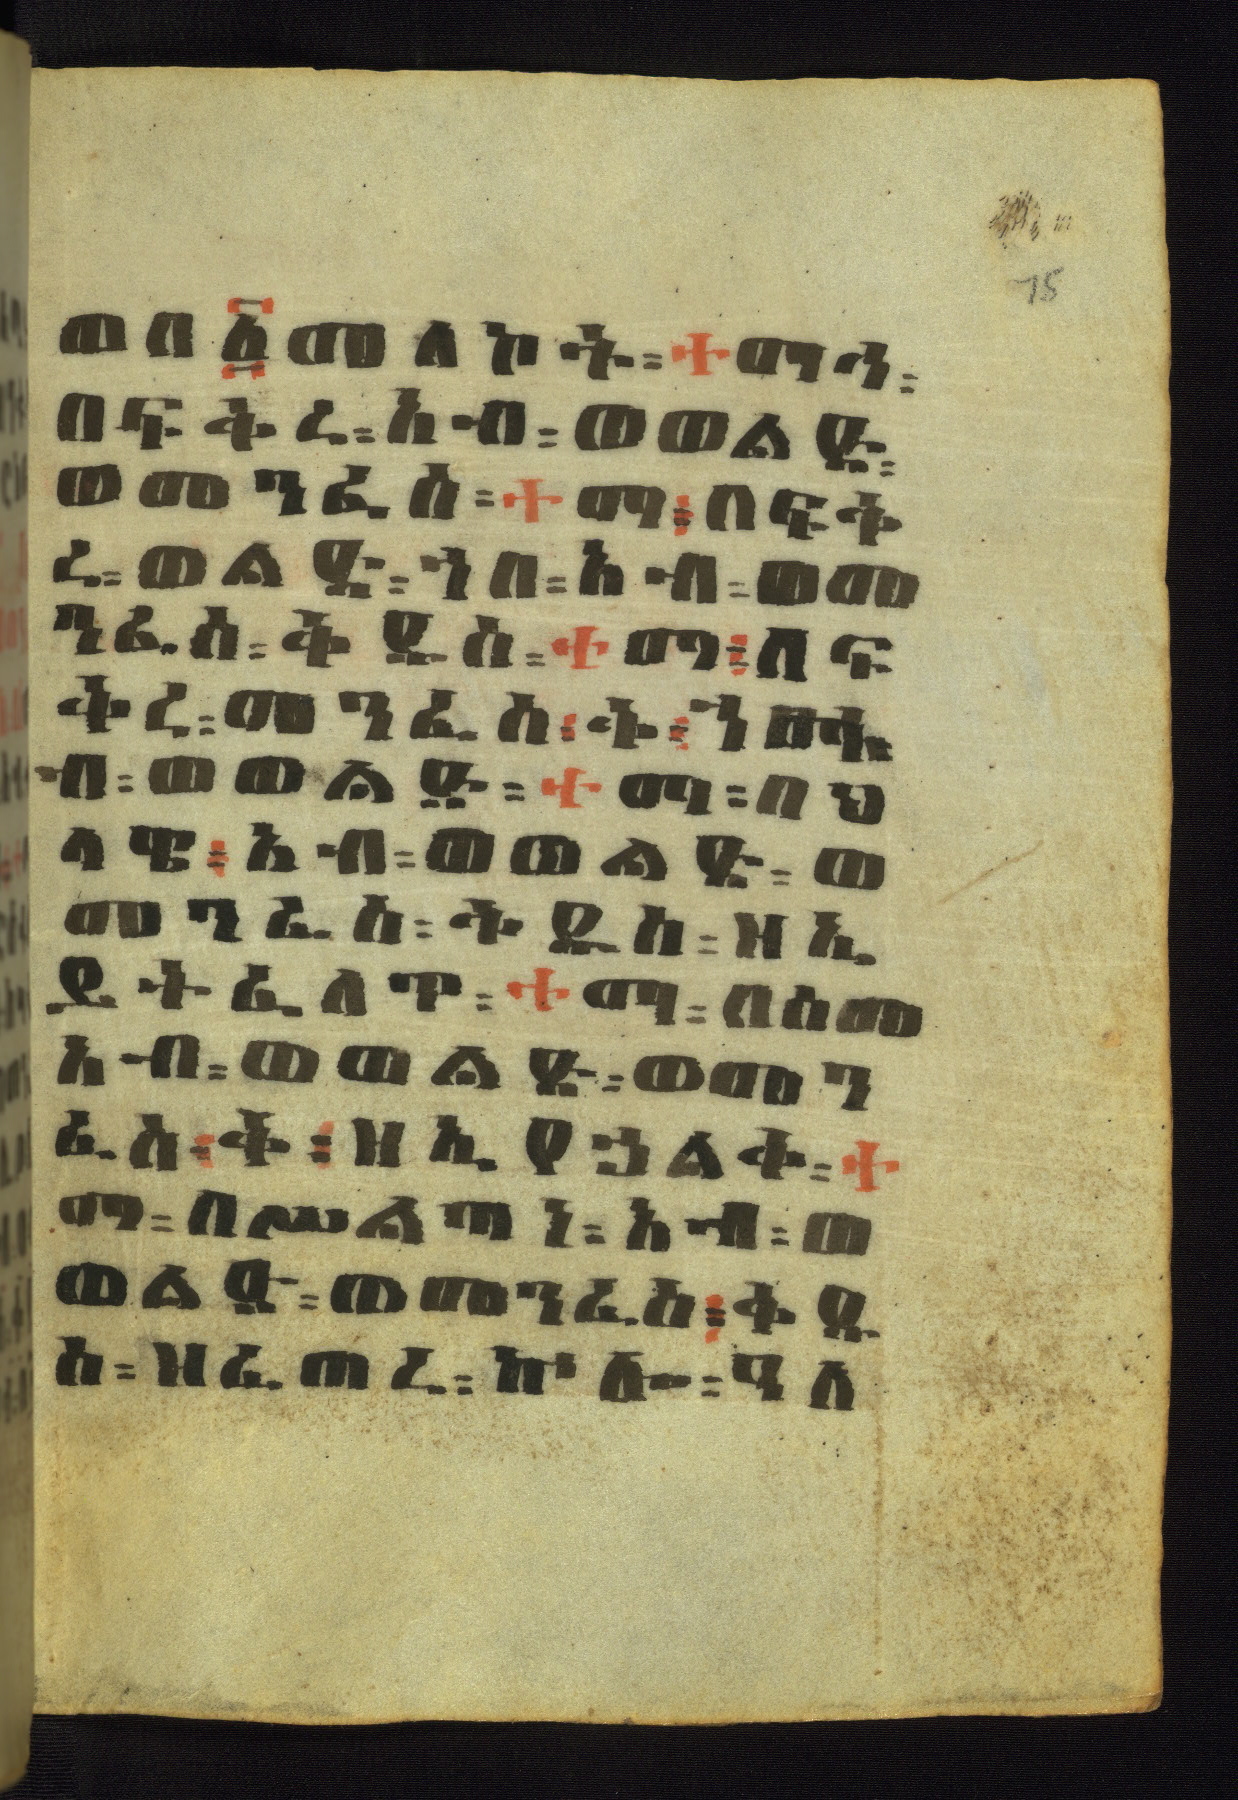 75
ወበ፩መለኮት፡ ✢ ወማኅ፡
በፍቅረ፡ አብ፡ ወወልድ፡
ወመንፈስ፡ ✢ ማ፡ በፍቅ
ረ፡ ወልድ፡ ኀበ፡ አብ፡ ወመ
ንፈስ፡ ቅዱስ፡ ✢ ማ፡ በፍ
ቅረ፡ መንፈስ፡ ቅ፡ ኀበ
አብ፡ ወወልድ፡ ✢ ማ፡ በህ
ላዌ፡ አብ፡ ወወልድ፡ ወ
መንፈስ፡ ቅዱስ፡ ዘኢ
ይትፈለጥ፡ ✢ ማ፡ በስመ
አብ፡ ወወልድ፡ ወመን
ፈስ፡ ቅ፡ ዘኢየኃልቅ፡ ✢
ማ፡ በሥልጣነ፡ አብ፡ ወ
ወልድ፡ ወመንፈስ፡ ቅዱ
ስ፡ ዘፈጠረ፡ ኵሎ፡ ዓለ